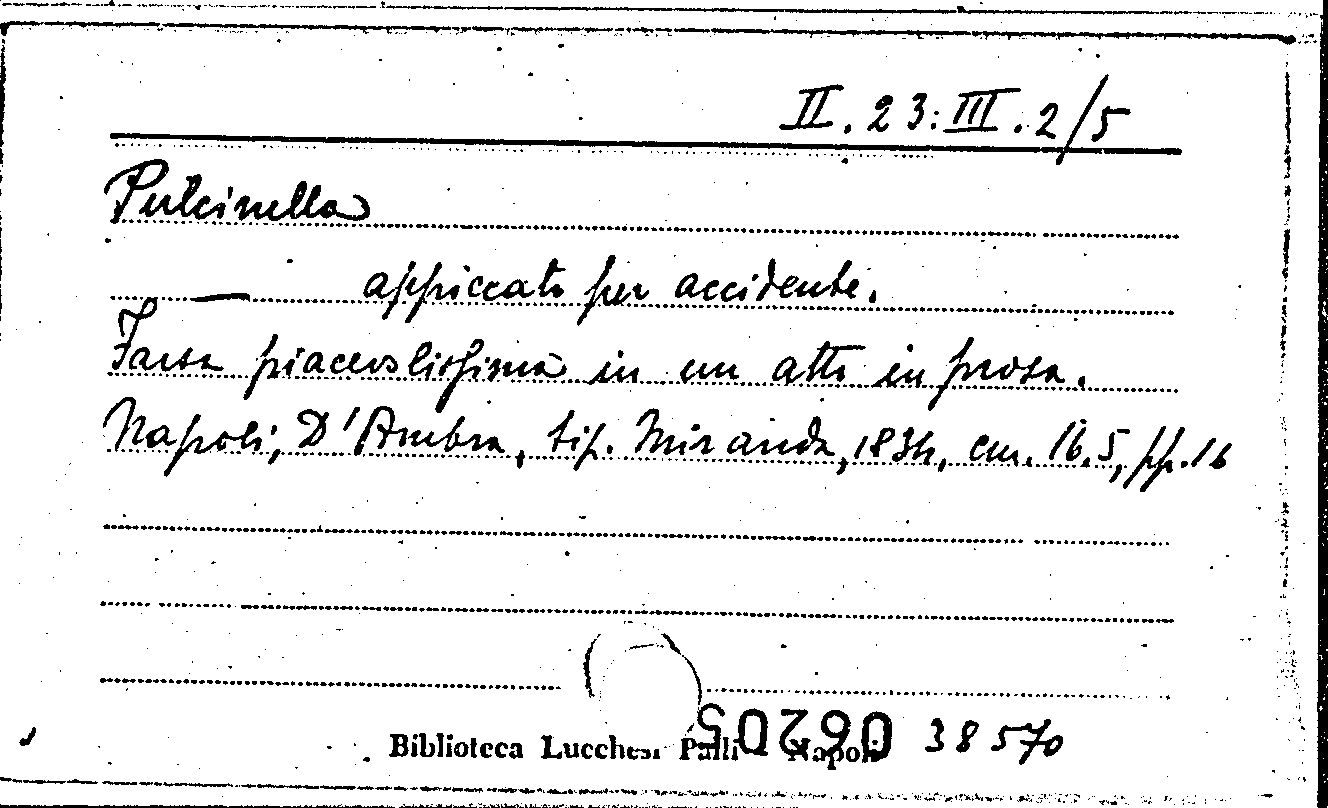 II. 23: III. 2/5
Pulcinella
— appiccato per accidente.
Farsa piacevolissima in un atto in prosa.
Napoli, D'Ambra, tip. Miranda, 1834, cm. 16.5, pp. 16
Biblioteca Lucchesi Palli - Napoli 38570
06205